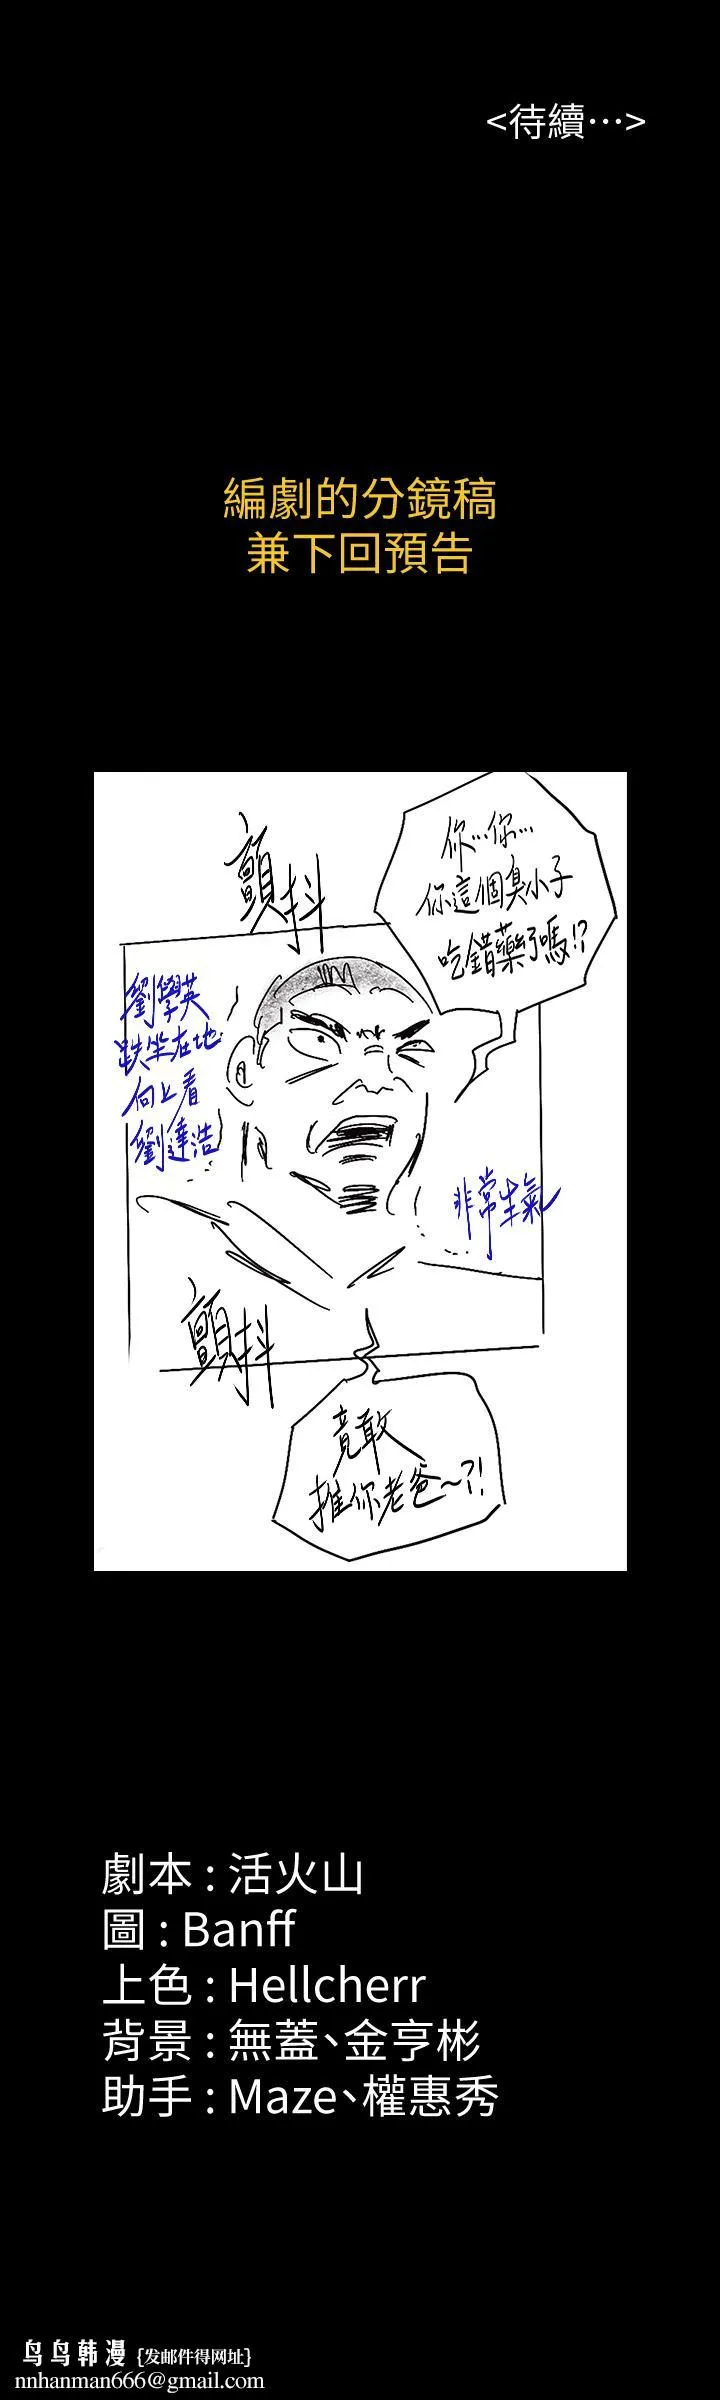 <待續…>
編劇的分鏡稿
兼下回預告
顫抖
你…你…
你這個臭小子
吃錯藥了嗎!?
劉學英
跌坐在地
向上看
劉達浩
非常生氣
顫抖
竟敢
推你老爸~?!
劇本 : 活火山
圖 : Banff
上色 : Hellcherr
背景 : 無蓋、金亨彬
助手 : Maze、權惠秀
鸟鸟韩漫 {发邮件得网址}
nnhanman666@gmail.com